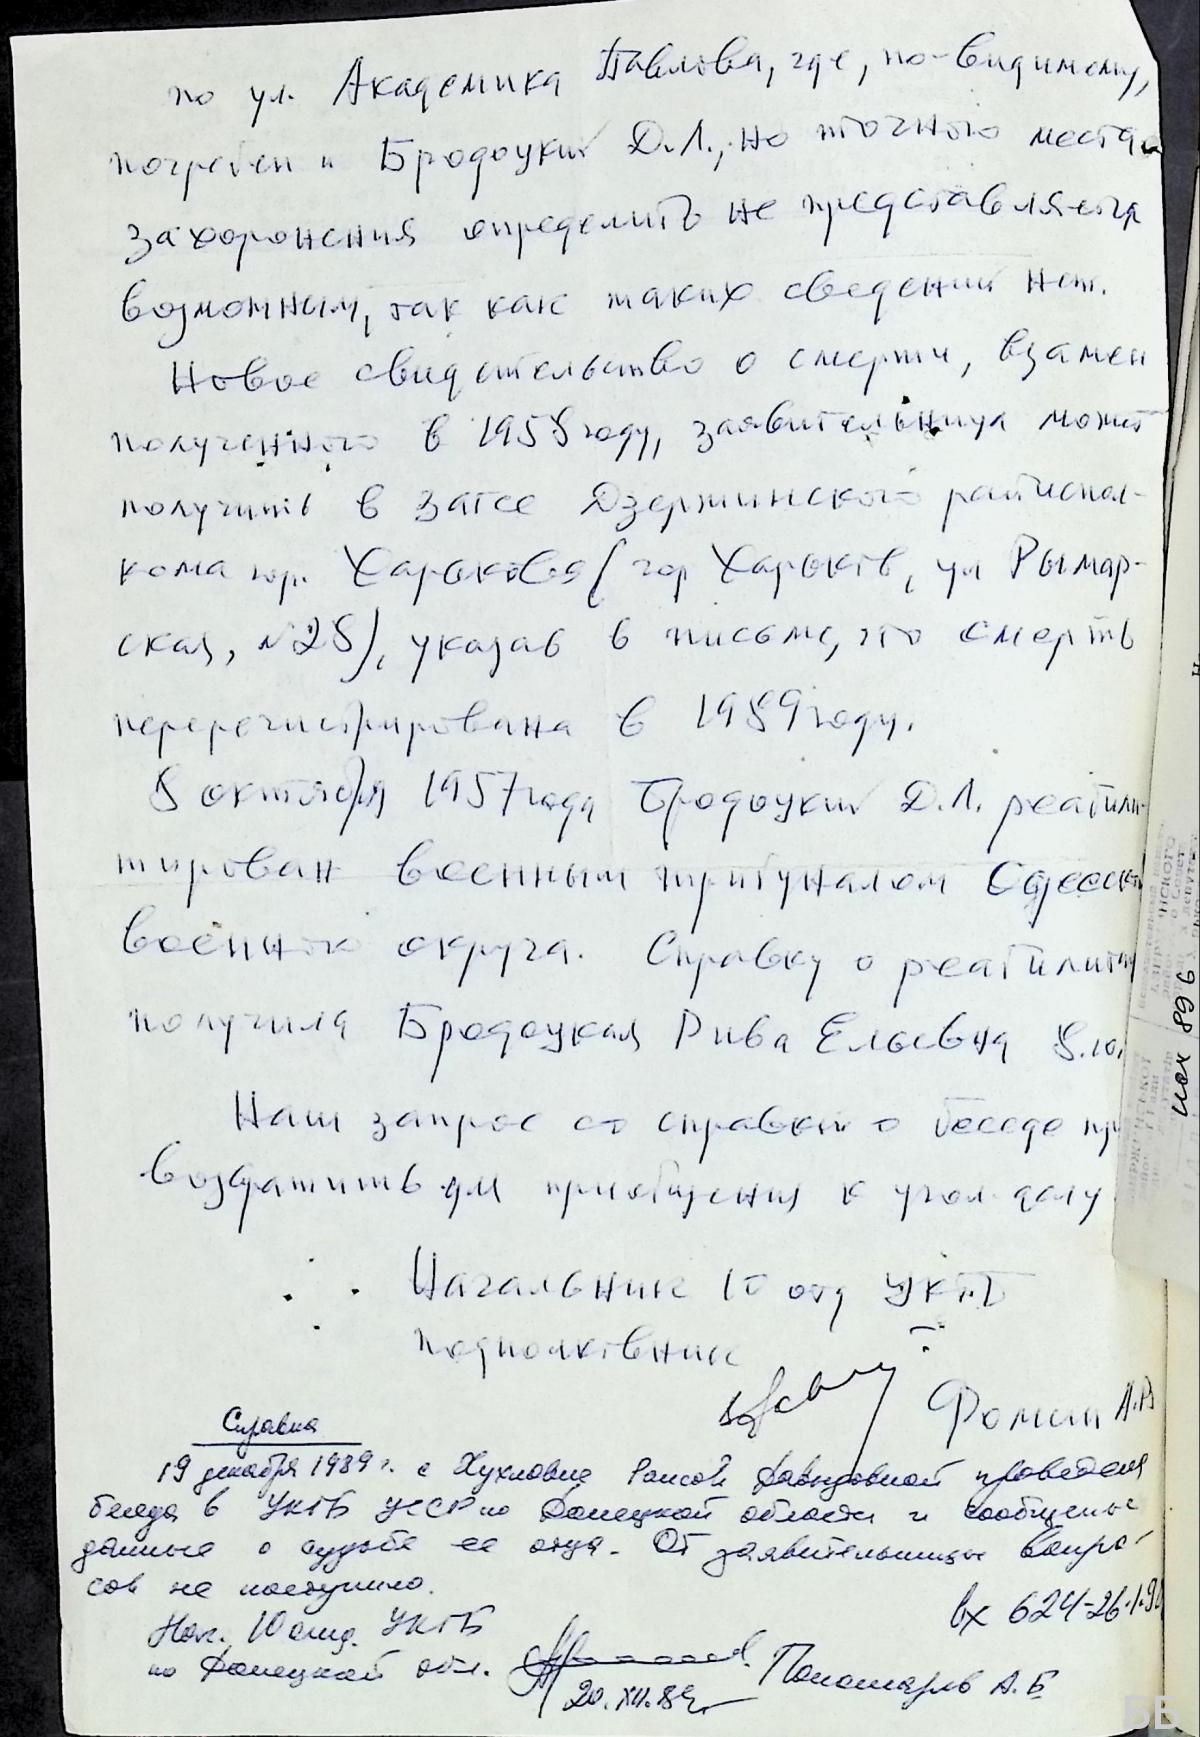 по ул. Академика Павлова, где, по-видимому,
погребен и Бродоцкий Д.Л., но точного места
захоронения определить не представляется
возможным, так как таких сведений нет.
Новое свидетельство о смерти, взамен
полученного в 1958 году, заявительница может
получить в загсе Дзержинского райиспол-
кома гор. Харькова (гор Харьков, ул Рымар-
ская, №28), указав в письме, что смерть
перерегистрирована в 1989 году.
8 октября 1957 года Бродоцкий Д.Л. реабили-
тирован военным трибуналом Одесск
военного округа. Справку о реабилита
получила Бродоцкая Рива Ельевна
Наш запрос со справкой о беседе пр
возвратить для приобщения к угол. делу
Начальник 10 отд УКГБ
подполковник
Фомин А.В
Справка
19 декабря 1989 г. с Раисой Давыдовной проведена
беседа в УКГБ УССР по Донецкой области и сообщены
данные о судьбе ее отца. От заявительницы вопро-
сов не поступило.
вх 624-26.1.90
Нач. 10 отд. УКГБ
по Донецкой обл.
Пономарев А.Б
20.XII.89г.
исх 896
ББ